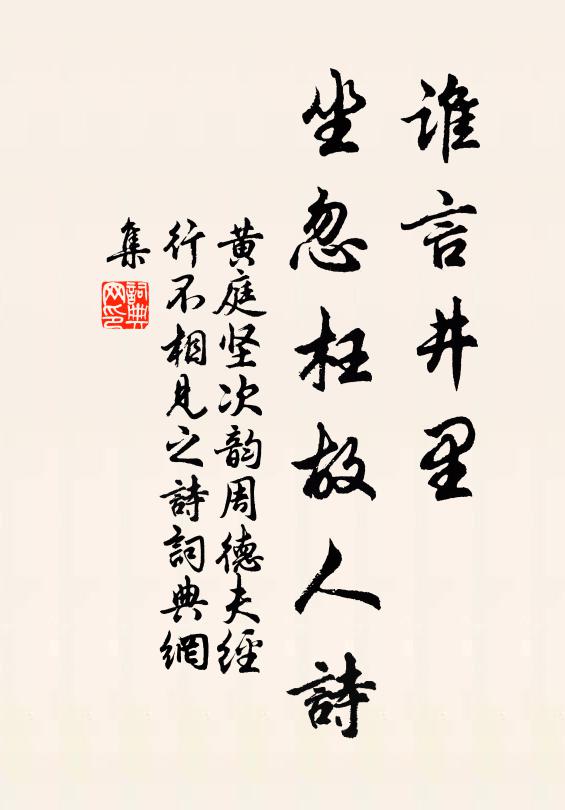 谁言井里
坐忽枉故人詩
黄庭坚次韵周德夫經
行不相見之詩詞典網
集
詞典
网印